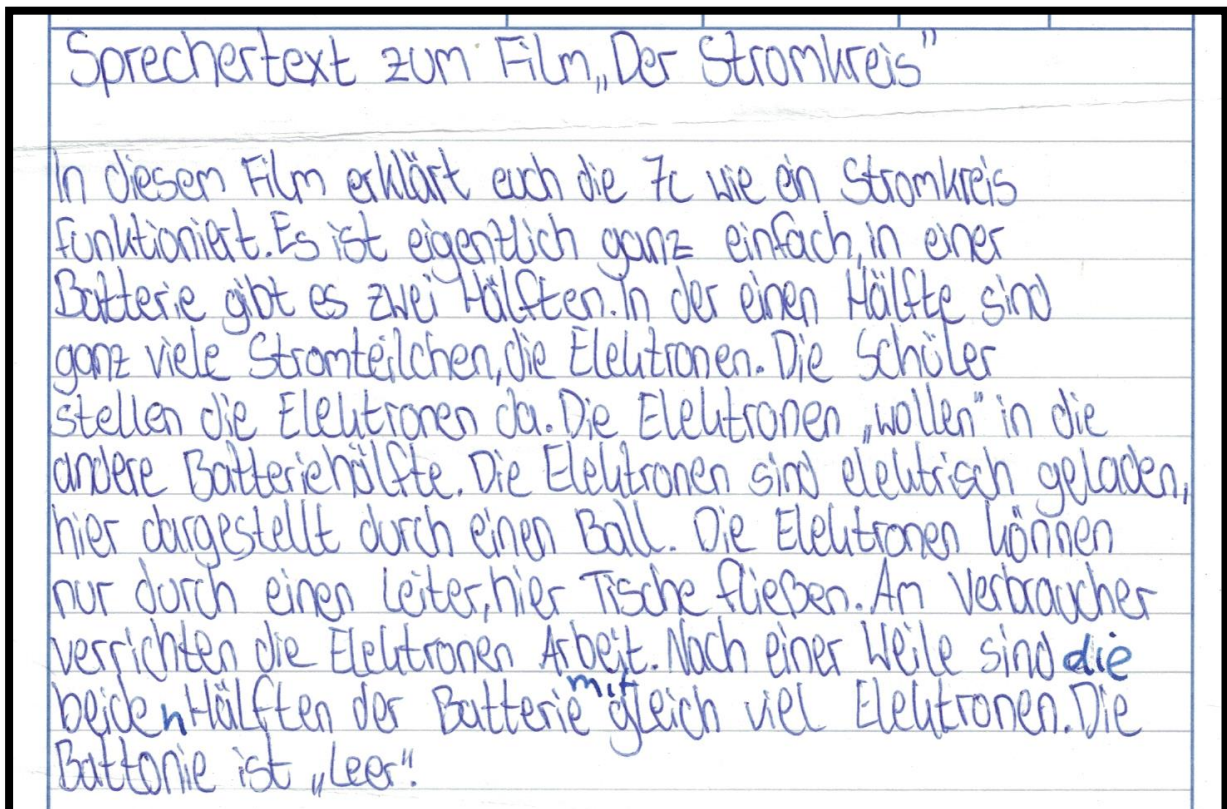 Sprechertext zum Film „Der Stromkreis"
In diesem Film erklärt euch die 7c wie ein Stromkreis
funktioniert. Es ist eigentlich ganz einfach, in einer
Batterie gibt es zwei Hälften. In der einen Hälfte sind
ganz viele Stromteilchen, die Elektronen. Die Schüler
stellen die Elektronen da. Die Elektronen „wollen" in die
andere Batteriehälfte. Die Elektronen sind elektrisch geladen,
hier dargestellt durch einen Ball. Die Elektronen können
nur durch einen Leiter, hier Tische fließen. Am Verbraucher
verrichten die Elektronen Arbeit. Nach einer Weile sind die
beiden Hälften der Batterie mit gleich viel Elektronen. Die
Battonie ist „Leer".